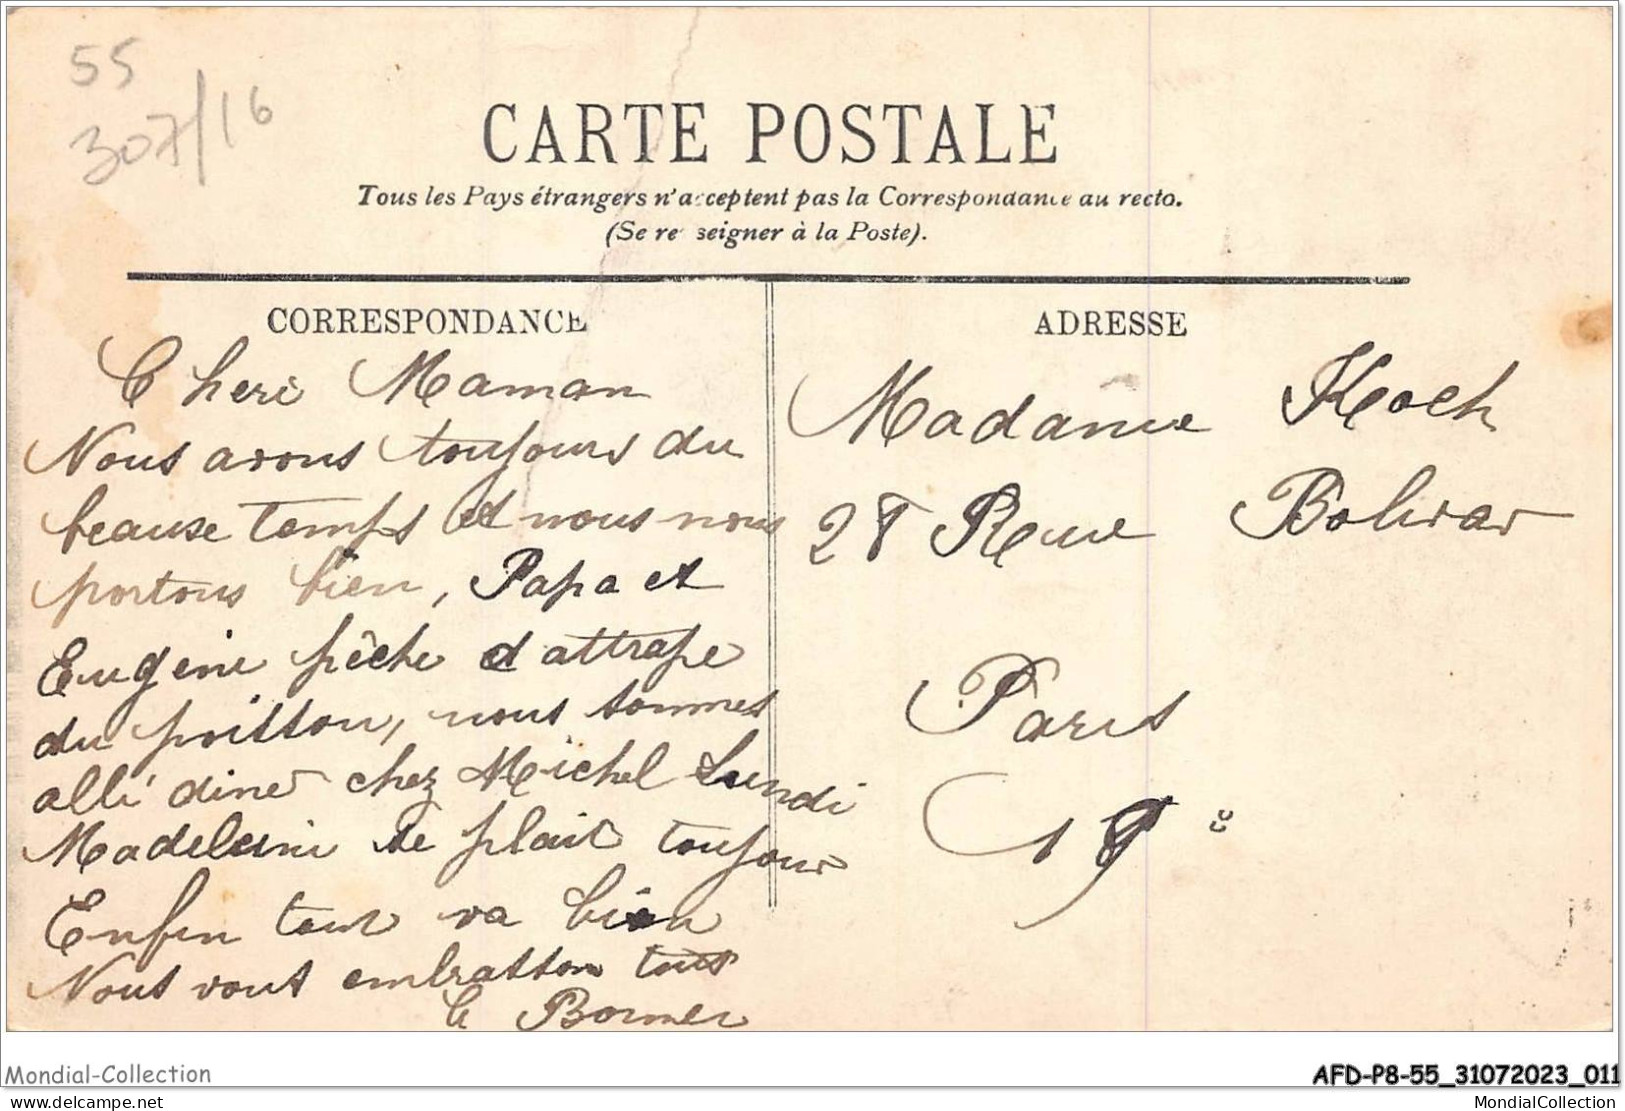 55
307/16
CARTE POSTALE
Tous les Pays étrangers n'acceptent pas la Correspondance au recto.
(Se re seigner à la Poste).
CORRESPONDANCE
Cheri Maman
Nous avons toujours du
beause temps et nous nous
portons bien, Papa et
Eugene pêche et attrape
du poisson, nous sommes
allé diner chez Michel Lundi
Madeleine se plait toujour
Enfin tout va bien
Nous vous embrasson tous
Bormer
ADRESSE
Madame Koch
28 Rue Bolivar
Paris
19e
Mondial-Collection
AFD-P8-55_31072023_011
www.delcampe.net
MondialCollection